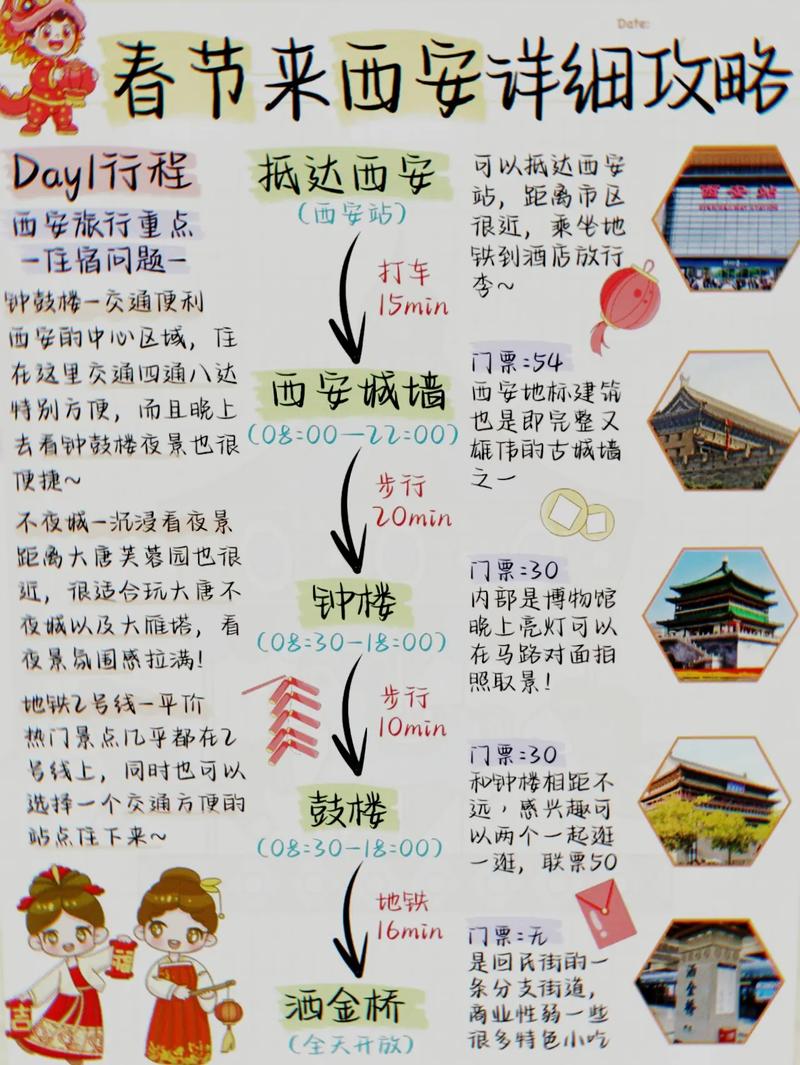 Date:
春节来西安详细攻略
Day1行程
西安旅行重点
-住宿问题-
钟鼓楼—交通便利
西安的中心区域，住
在这里交通四通八达
特别方便，而且晚上
去看钟鼓楼夜景也很
便捷~
不夜城—沉浸看夜景
距离大唐芙蓉园也很
近，很适合玩大唐不
夜城以及大雁塔，看
夜景氛围感拉满！
地铁2号线—平价
热门景点几乎都在2
号线上，同时也可以
选择一个交通方便的
站点住下来~
抵达西安
(西安站)
打车
15min
西安城墙
(08:00—22:00)
步行
20min
钟楼
(08:30-18:00)
步行
10min
鼓楼
(08:30-18:00)
地铁
16min
洒金桥
(全天开放)
可以抵达西安
站，距离市区
很近，乘坐地
铁到酒店放行
李~
西安站
门票:54
西安地标建筑
也是即完整又
雄伟的古城墙
之一
门票:30
内部是博物馆
晚上亮灯可以
在马路对面拍
照取景！
门票:30
和钟楼相距不
远，感兴趣可
以两个一起逛
一逛，联票50
门票:无
是回民街的一
条分支街道，
商业性弱一些
很多特色小吃
洒金桥
福
吉